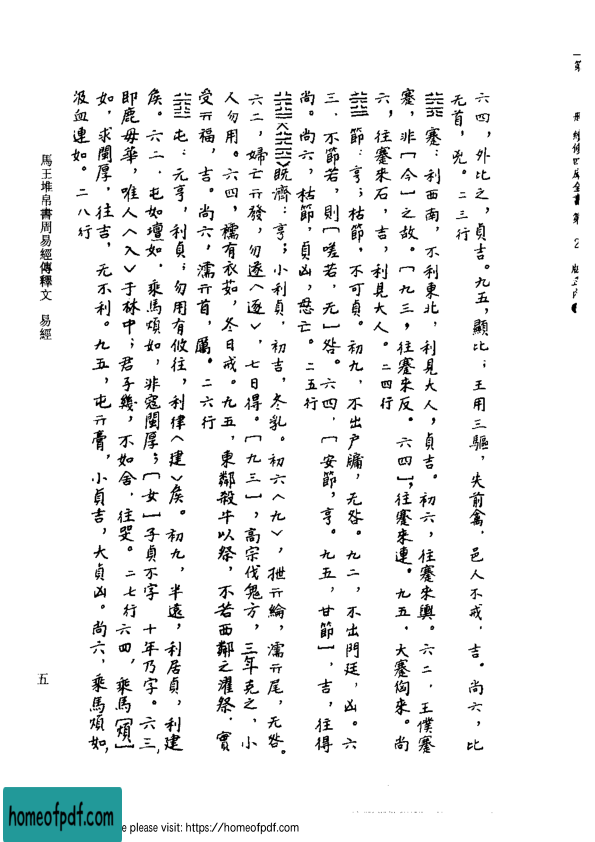 六四，外比之，貞吉。九五，顯比；王用三驅，失前禽，邑人不戒，吉。尚六，比
无首，兇。二三行
蹇：利西南，不利東北，利見大人，貞吉。初六，往蹇來輿。六二，王僕蹇
蹇，非［今］之故。［九三，往蹇來反。六四］，往蹇來連。九五，大蹇倗來。尚
六，往蹇來石，吉，利見大人。二四行
節：亨；枯節，不可貞。初九，不出戶牖，无咎。九二，不出門廷，凶。六
三，不節若，則［嗟若，无］咎。六四，［安節，亨。九五，甘節］，吉，往得
尚。尚六，枯節，貞凶，亡。二五行
旣濟：亨；小利貞，初吉，冬乳。初六〈九〉，抴亓綸，濡亓尾，无咎。
六二，婦亡亓發，勿遂〈逐〉，七日得。［九三］，高宗伐鬼方，三年克之，小
人勿用。六四，襦有衣茹，冬日戒。九五，東鄰殺牛以祭，不若西鄰之濯祭，實
受亓福，吉。尚六，濡亓首，厲。二六行
屯：元亨，利貞；勿用有攸往，利律〈建〉矦。初九，半遠，利居貞，利建
矦。六二，屯如壇如，乘馬煩如，非寇閩厚；［女］子貞不字，十年乃字。六三，
即鹿毋華，唯人〈入〉于林中；君子幾，不如舍，往哭。二七行六四，乘馬［煩］
如，求閩厚，往吉，无不利。九五，屯亓膏，小貞吉，大貞凶。尚六，乘馬煩如，
汲血連如。二八行
馬王堆帛書周易經傳釋文　易經
五
homeofpdf.com
e please visit: https://homeofpdf.com